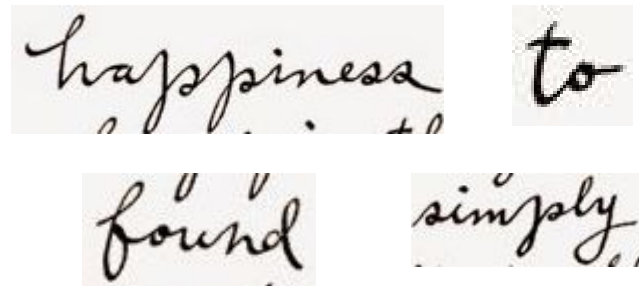 happiness to
found simply